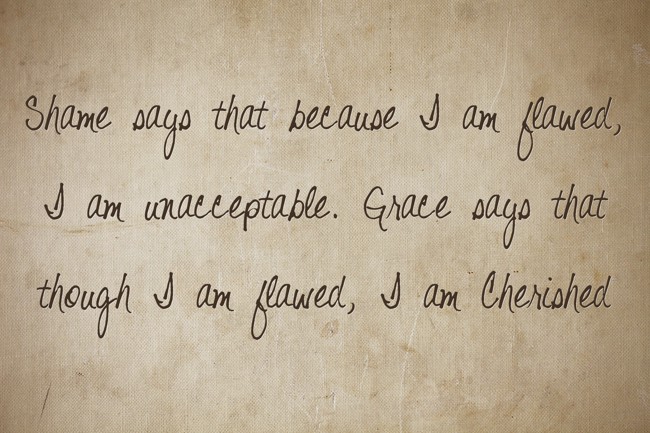 Shame says that because I am flawed,
I am unacceptable. Grace says that
though I am flawed, I am Cherished